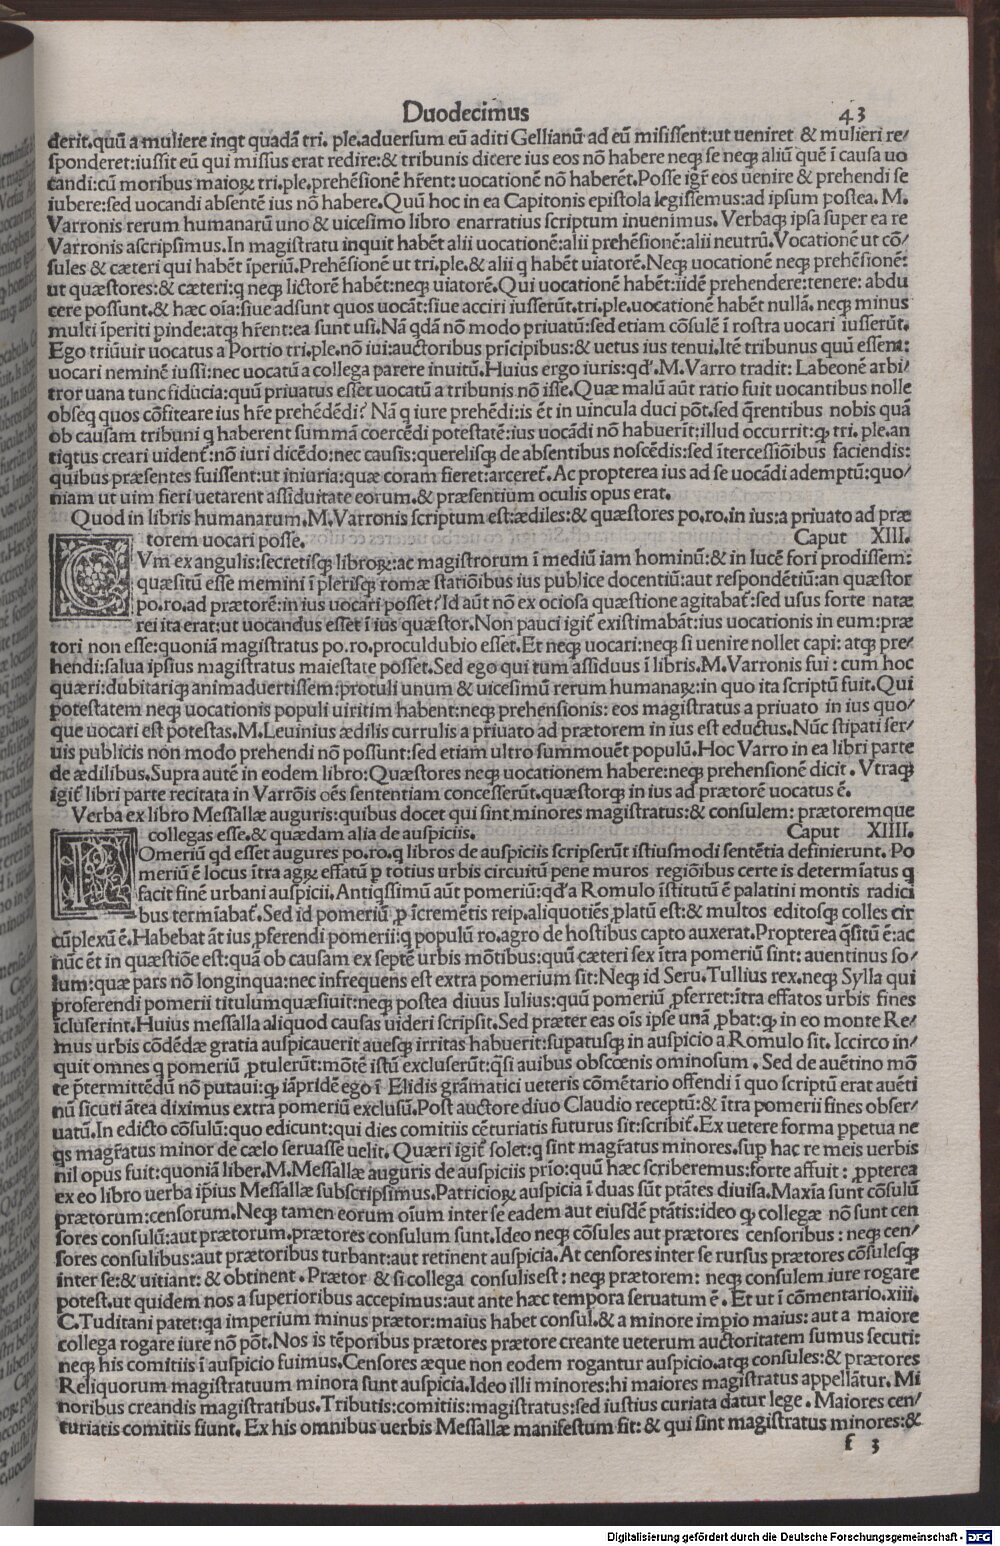 Duodecimus 43
derit.quū a muliere inqt quadā tri. ple.aduersum eū aditi Gellianū ad eū misissent:ut ueniret & mulieri re/
sponderet:iussit eū qui missus erat redire:& tribunis dicere ius eos nō habere neqꝫ se neqꝫ aliū quē ī causa uo
candi:cū moribus maioꝝ tri.ple.prehēsionē hr̄ent: uocationē nō haberēt.Posse igr̄ eos uenire & prehendi se
iubere:sed uocandi absentē ius nō habere.Quū hoc in ea Capitonis epistola legissemus:ad ipsum postea. M.
Varronis rerum humanarū uno & uicesimo libro enarratius scriptum inuenimus. Verbaqꝫ ipsa super ea re
Varronis ascripsimus.In magistratu inquit habēt alii uocationē:alii prehēsionē:alii neutrū.Vocationē ut cō/
sules & cæteri qui habēt īperiū.Prehēsionē ut tri.ple.& alii q habēt uiatorē.Neqꝫ uocationē neqꝫ prehēsionē:
ut quæstores:& cæteri:q neqꝫ lictorē habēt:neqꝫ uiatorē.Qui uocationē habēt:iidē prehendere:tenere: abdu
cere possunt.& hæc oīa:siue adsunt quos uocāt:siue acciri iusserūt.tri.ple.uocationē habēt nullā. neqꝫ minus
multi īperiti ꝑinde:atqꝫ hr̄ent:ea sunt usi.Nā qdā nō modo priuatū:sed etiam cōsulē ī rostra uocari iusserūt.
Ego triūuir uocatus a Portio tri.ple.nō iui:auctoribus prīcipibus:& uetus ius tenui.Itē tribunus quū essem:
uocari neminē iussi:nec uocatū a collega parere inuitū.Huius ergo iuris:qd'.M.Varro tradit: Labeonē arbi/
tror uana tunc fiducia:quū priuatus esset uocatū a tribunis nō isse.Quæ malū aūt ratio fuit uocantibus nolle
obseq quos cōfiteare ius hr̄e prehēdēdi? Nā q iure prehēdi:is ēt in uincula duci pōt.sed q̄rentibus nobis quā
ob causam tribuni q haberent summā coercēdi potestatē:ius uocādi nō habuerīt:illud occurrit:ꝙ tri. ple.an
tiqtus creari uident̄:nō iuri dicēdo:nec causis:querelisqꝫ de absentibus noscēdis:sed ītercessiōibus faciendis:
quibus præsentes fuissent:ut iniuria:quæ coram fieret:arceret̄.Ac propterea ius ad se uocādi ademptū:quo/
niam ut uim fieri uetarent assiduitate eorum.& præsentium oculis opus erat.
Quod in libris humanarum.M.Varronis scriptum est:ædiles:& quæstores po.ro.in ius:a priuato ad præ
torem uocari posse. Caput XIII.
CVm ex angulis:secretisqꝫ libroꝝ:ac magistrorum ī mediū iam hominū:& in lucē fori prodissem:
quæsitū esse memini ī plerisqꝫ romæ statiōibus ius publice docentiū:aut respondētiū:an quæstor
po.ro.ad prætorē:in ius uocari posset?Id aūt nō ex ociosa quæstione agitabat̄:sed usus forte natæ
rei ita erat:ut uocandus esset ī ius quæstor.Non pauci igit̄ existimabāt:ius uocationis in eum:præ
tori non esse:quoniā magistratus po.ro.proculdubio esset.Et neqꝫ uocari:neqꝫ si uenire nollet capi: atqꝫ pre/
hendi:salua ipsius magistratus maiestate posset.Sed ego qui tum assiduus ī libris.M.Varronis fui: cum hoc
quæri:dubitariqꝫ animaduertissem:protuli unum & uicesimū rerum humanaꝝ:in quo ita scriptū fuit.Qui
potestatem neqꝫ uocationis populi uiritim habent:neqꝫ prehensionis: eos magistratus a priuato in ius quo/
que uocari est potestas.M.Leuinius ædilis currulis a priuato ad prætorem in ius est eductus.Nūc stipati ser/
uis publicis non modo prehendi nō possunt:sed etiam ultro summouēt populū.Hoc Varro in ea libri parte
de ædilibus.Supra autē in eodem libro:Quæstores neqꝫ uocationem habere:neqꝫ prehensionē dicit. Vtraqꝫ
igit̄ libri parte recitata in Varrōis oēs sententiam concesserūt.quæstorqꝫ in ius ad prætorē uocatus ē.
Verba ex libro Messallæ auguris:quibus docet qui sint minores magistratus:& consulem: prætoremque
collegas esse.& quædam alia de auspiciis. Caput XIIII.
POmeriū qd esset augures po.ro.q libros de auspiciis scripserūt istiusmodi sentētia definierunt. Po
meriū ē locus ītra agꝝ effatū ꝑ totius urbis circuitū pene muros regiōibus certe is determīatus q
facit finē urbani auspicii.Antiqssimū aūt pomeriū:qd'a Romulo īstitutū ē palatini montis radici
bus termīabat̄.Sed id pomeriū ꝓ īcremētis reip.aliquotiēs ꝓlatū est:& multos editosqꝫ colles cir
cūplexū ē.Habebat āt ius ꝓferendi pomerii:q populū ro.agro de hostibus capto auxerat.Propterea q̄sitū ē:ac
nūc ēt in quæstiōe est:quā ob causam ex septē urbis mōtibus:quū cæteri sex ītra pomeriū sint: auentinus so/
lum:quæ pars nō longinqua:nec infrequens est extra pomerium sit:Neqꝫ id Seru.Tullius rex.neqꝫ Sylla qui
proferendi pomerii titulumquæsiuit:neqꝫ postea diuus Iulius:quū pomeriū ꝓferret:ītra effatos urbis fines
īcluserint.Huius messalla aliquod causas uideri scripsit.Sed præter eas oīs ipse unā ꝓbat:ꝙ in eo monte Re/
mus urbis cōdēdæ gratia auspicauerit auesqꝫ irritas habuerit:supatusqꝫ in auspicio a Romulo sit. Iccirco in/
quit omnes q pomeriū ꝓtulerūt:mōtē istū excluserūt:q̄si auibus obscœnis ominosum. Sed de auētino mō
te p̄termittēdū nō putaui:ꝙ iāpridē ego ī Elidis grāmatici ueteris cōmētario offendi ī quo scriptū erat auēti
nū sicuti ātea diximus extra pomeriū exclusū.Post auctore diuo Claudio receptū:& ītra pomerii fines obser/
uatū.In edicto cōsulū:quo edicunt:qui dies comitiis cēturiatis futurus sit:scribit̄.Ex uetere forma ꝑpetua ne
qs magr̄atus minor de cælo seruasse uelit. Quæri igit̄ solet:q sint magr̄atus minores.sup hac re meis uerbis
nil opus fuit:quoniā liber.M.Messallæ auguris de auspiciis prīo:quū hæc scriberemus:forte affuit: ꝓpterea
ex eo libro uerba ip̄ius Messallæ subscripsimus.Patricioꝝ auspicia ī duas sūt ptātes diuisa.Maxīa sunt cōsulū
prætorum:censorum.Neqꝫ tamen eorum oīum inter se eadem aut eiusdē ptātis:ideo ꝙ collegæ nō sunt cen
sores consulū:aut prætorum.prætores consulum sunt.Ideo neqꝫ cōsules aut prætores censoribus: neqꝫ cen/
sores consulibus:aut prætoribus turbant:aut retinent auspicia.At censores inter se rursus prætores cōsulesqꝫ
inter se:& uitiant: & obtinent. Prætor & si collega consulisest: neqꝫ prætorem: neqꝫ consulem iure rogare
potest.ut quidem nos a superioribus accepimus:aut ante hæc tempora seruatum ē. Et ut ī cōmentario.xiii.
C.Tuditani patet:qa imperium minus prætor:maius habet consul.& a minore impio maius: aut a maiore
collega rogare iure nō pōt.Nos is tēporibus prætores prætore creante ueterum auctoritatem sumus secuti:
neqꝫ his comitiis ī auspicio fuimus.Censores æque non eodem rogantur auspicio.atqꝫ consules:& prætores
Reliquorum magistratuum minora sunt auspicia.Ideo illi minores:hi maiores magistratus appellātur. Mi
noribus creandis magistratibus.Tributis:comitiis:magistratus:sed iustius curiata datur lege. Maiores cen/
turiatis comitiis fiunt. Ex his omnibus uerbis Messallæ manifestum sit: & qui sint magistratus minores:&
f 3
Digitalisierung gefördert durch die Deutsche Forschungsgemeinschaft - DFG